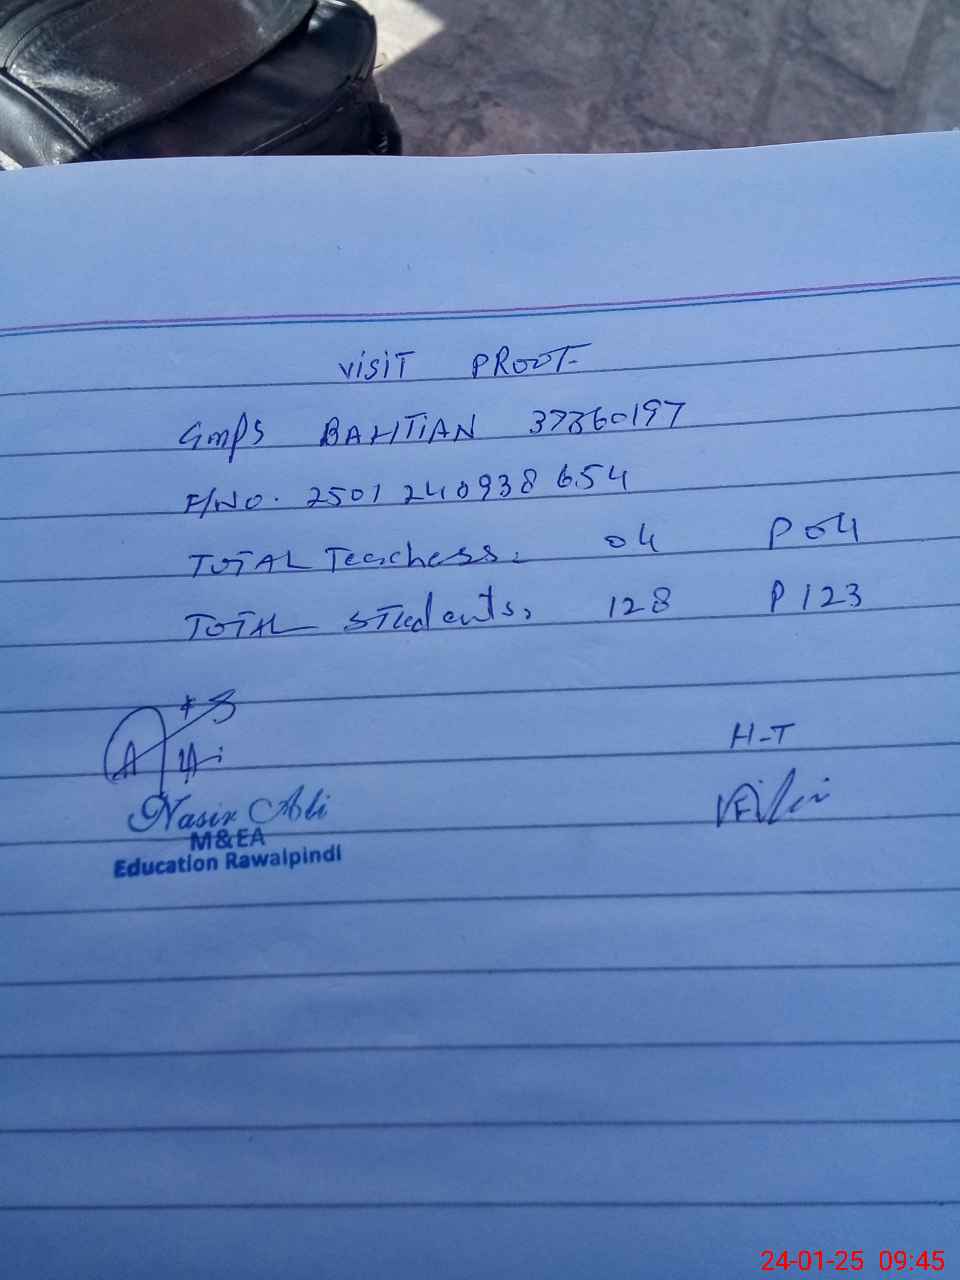 VISIT PROOF
GMPS BAHTIAN 37360197
F/NO. 2501240938654
TOTAL Teachers. 04 P 04
TOTAL Students. 128 P 123
H-T
Nasir Ali
M&EA
Education Rawalpindi
24-01-25 09:45